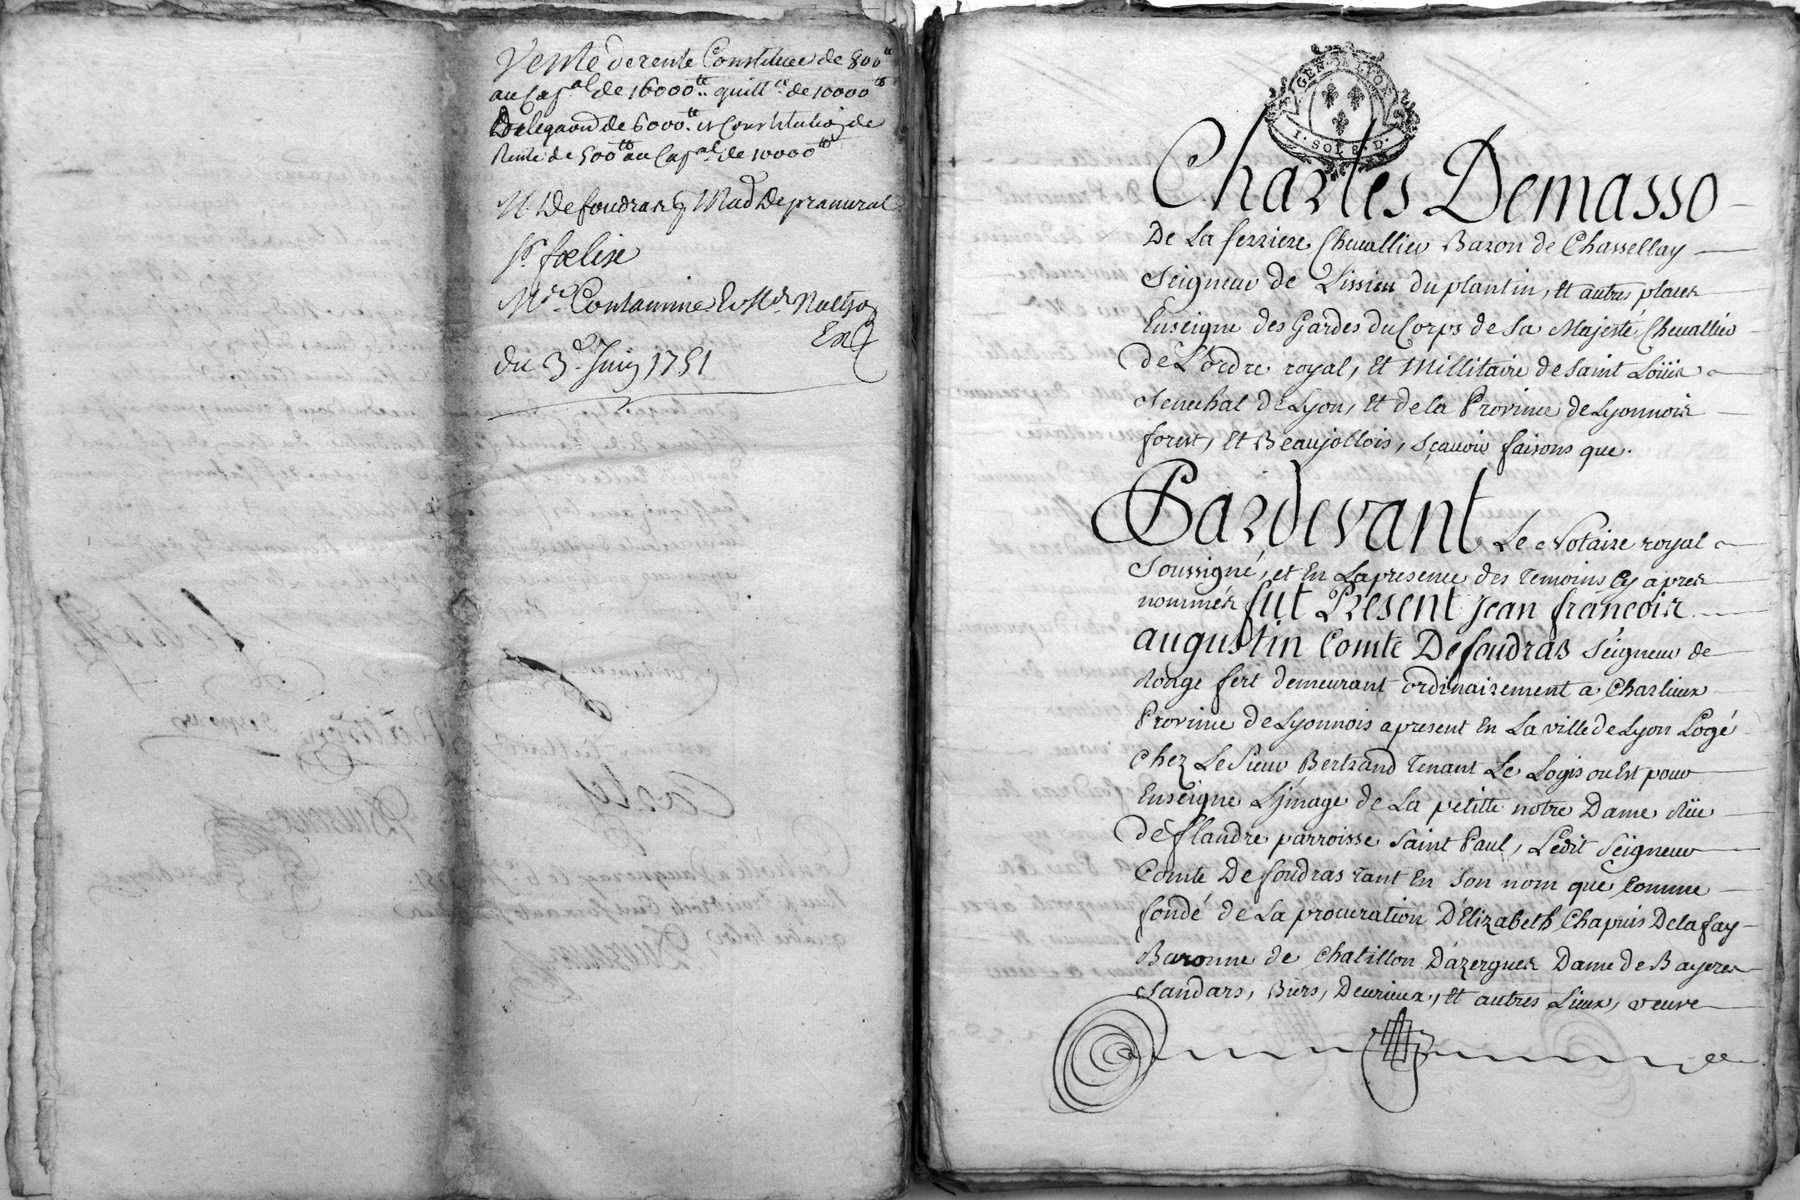 Vente de rente Constituee de 800tt
au Capal de 16000tt quittce de 10000tt
Delegaon de 6000tt et Constitution de
Rente de 500tt au Capal de 10000tt
M. Defoudras & Mad. De pramiral
St foelix
Contamine &
Exp
du 3e Juin 1751
GEN. DE LYON
I. SOL 8. D.
Charles Demasso
De La ferriere Chevallier Baron de Chassellay
Seigneur de Lissieu du plantin, et autres places
Enseigne des Gardes du Corps de sa Majesté, Chevallier
de L'ordre royal, et Millitaire de saint Loüis
Senechal de Lyon, et de la Province de Lyonnois
forest, et Beaujollois, sçavoir faisons que.
Pardevant Le Notaire royal
Soussigné, et En La presence des Temoins Cy apres
nommés fut Present Jean francois
augustin Comte Defoudras Seigneur de
Rongefert demeurant ordinairement a Charlieux
Province de Lyonnois a present En La ville de Lyon Logé
Chez Le Sieur Bertrand Tenant Le Logis ou Est pour
Enseigne L'jmage de La petitte notre Dame Rüe
de flandre parroisse Saint Paul, Ledit Seigneur
Comte Defoudras tant En son nom que Comme
fondé de La procuration D'Elizabeth Chapuis Delafay
Baronne de Chatillon D'azergues Dame de Bayeres
Sandars, Biers, Deurieux, et autres Lieux, veuve